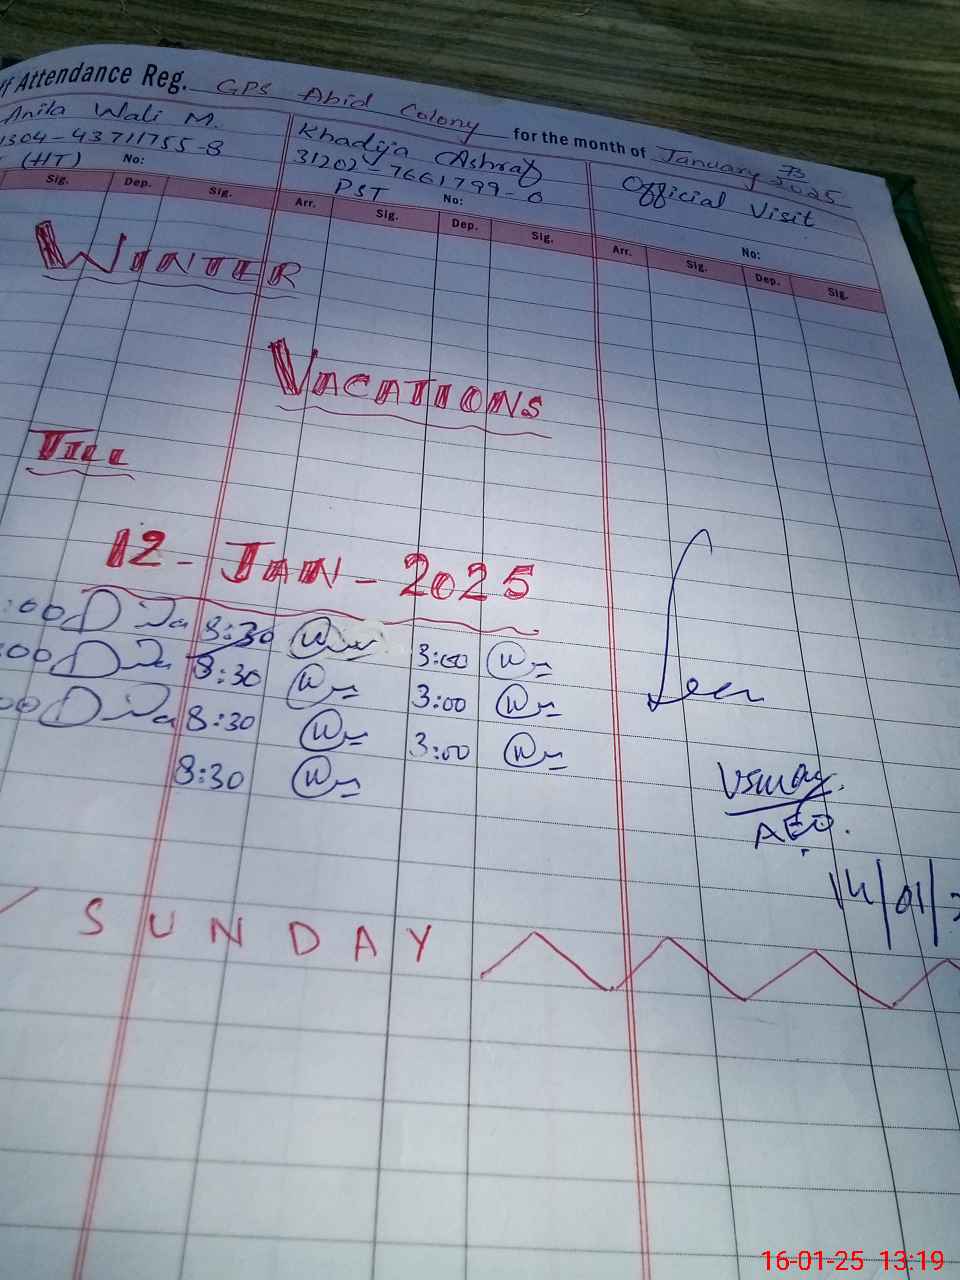 Attendance Reg. GPS Abid Colony for the month of January 2025
73
Anila Wali M. Khadija Ashraf Official Visit
1304-43711755-8 31202-7661799-0
(HT) No: PST No: No:
Sig. Dep. Sig. Arr. Sig. Dep. Sig. Arr. Sig. Dep. Sig.
WINTER
VACATIONS
TILL
12-JAN-2025
:00 8:30 3:00
:00 8:30 3:00
00 8:30 3:00
8:30
Seen
AEO.
14/01/
SUNDAY
16-01-25 13:19